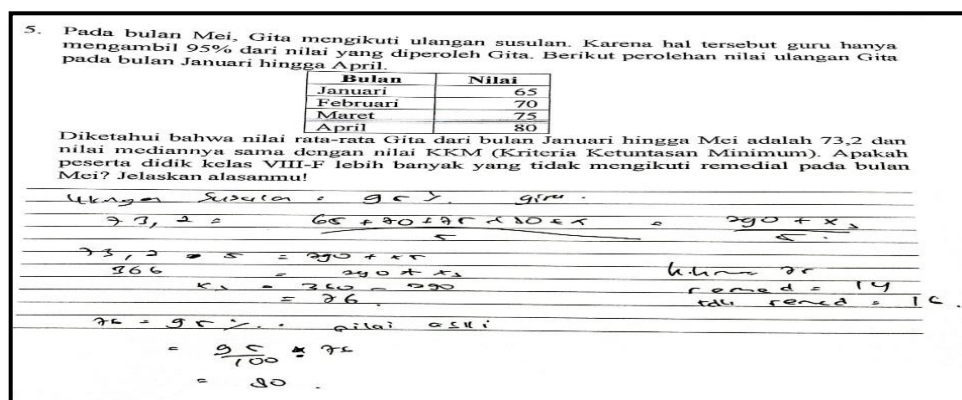 5. Pada bulan Mei, Gita mengikuti ulangan susulan. Karena hal tersebut guru hanya
mengambil 95% dari nilai yang diperoleh Gita. Berikut perolehan nilai ulangan Gita
pada bulan Januari hingga April.
Bulan Nilai
Januari 65
Februari 70
Maret 75
April 80
Diketahui bahwa nilai rata-rata Gita dari bulan Januari hingga Mei adalah 73,2 dan
nilai mediannya sama dengan nilai KKM (Kriteria Ketuntasan Minimum). Apakah
peserta didik kelas VIII-F lebih banyak yang tidak mengikuti remedial pada bulan
Mei? Jelaskan alasanmu!
Ulangan Susulan = 95 %.
73,2 = 65 + 70 + 75 + 80 + x = 290 + x
5 5
366
= 76
remed = 14
tdk remed = 16.
76 = 95 %. nilai asli
= 95
100
= 80.